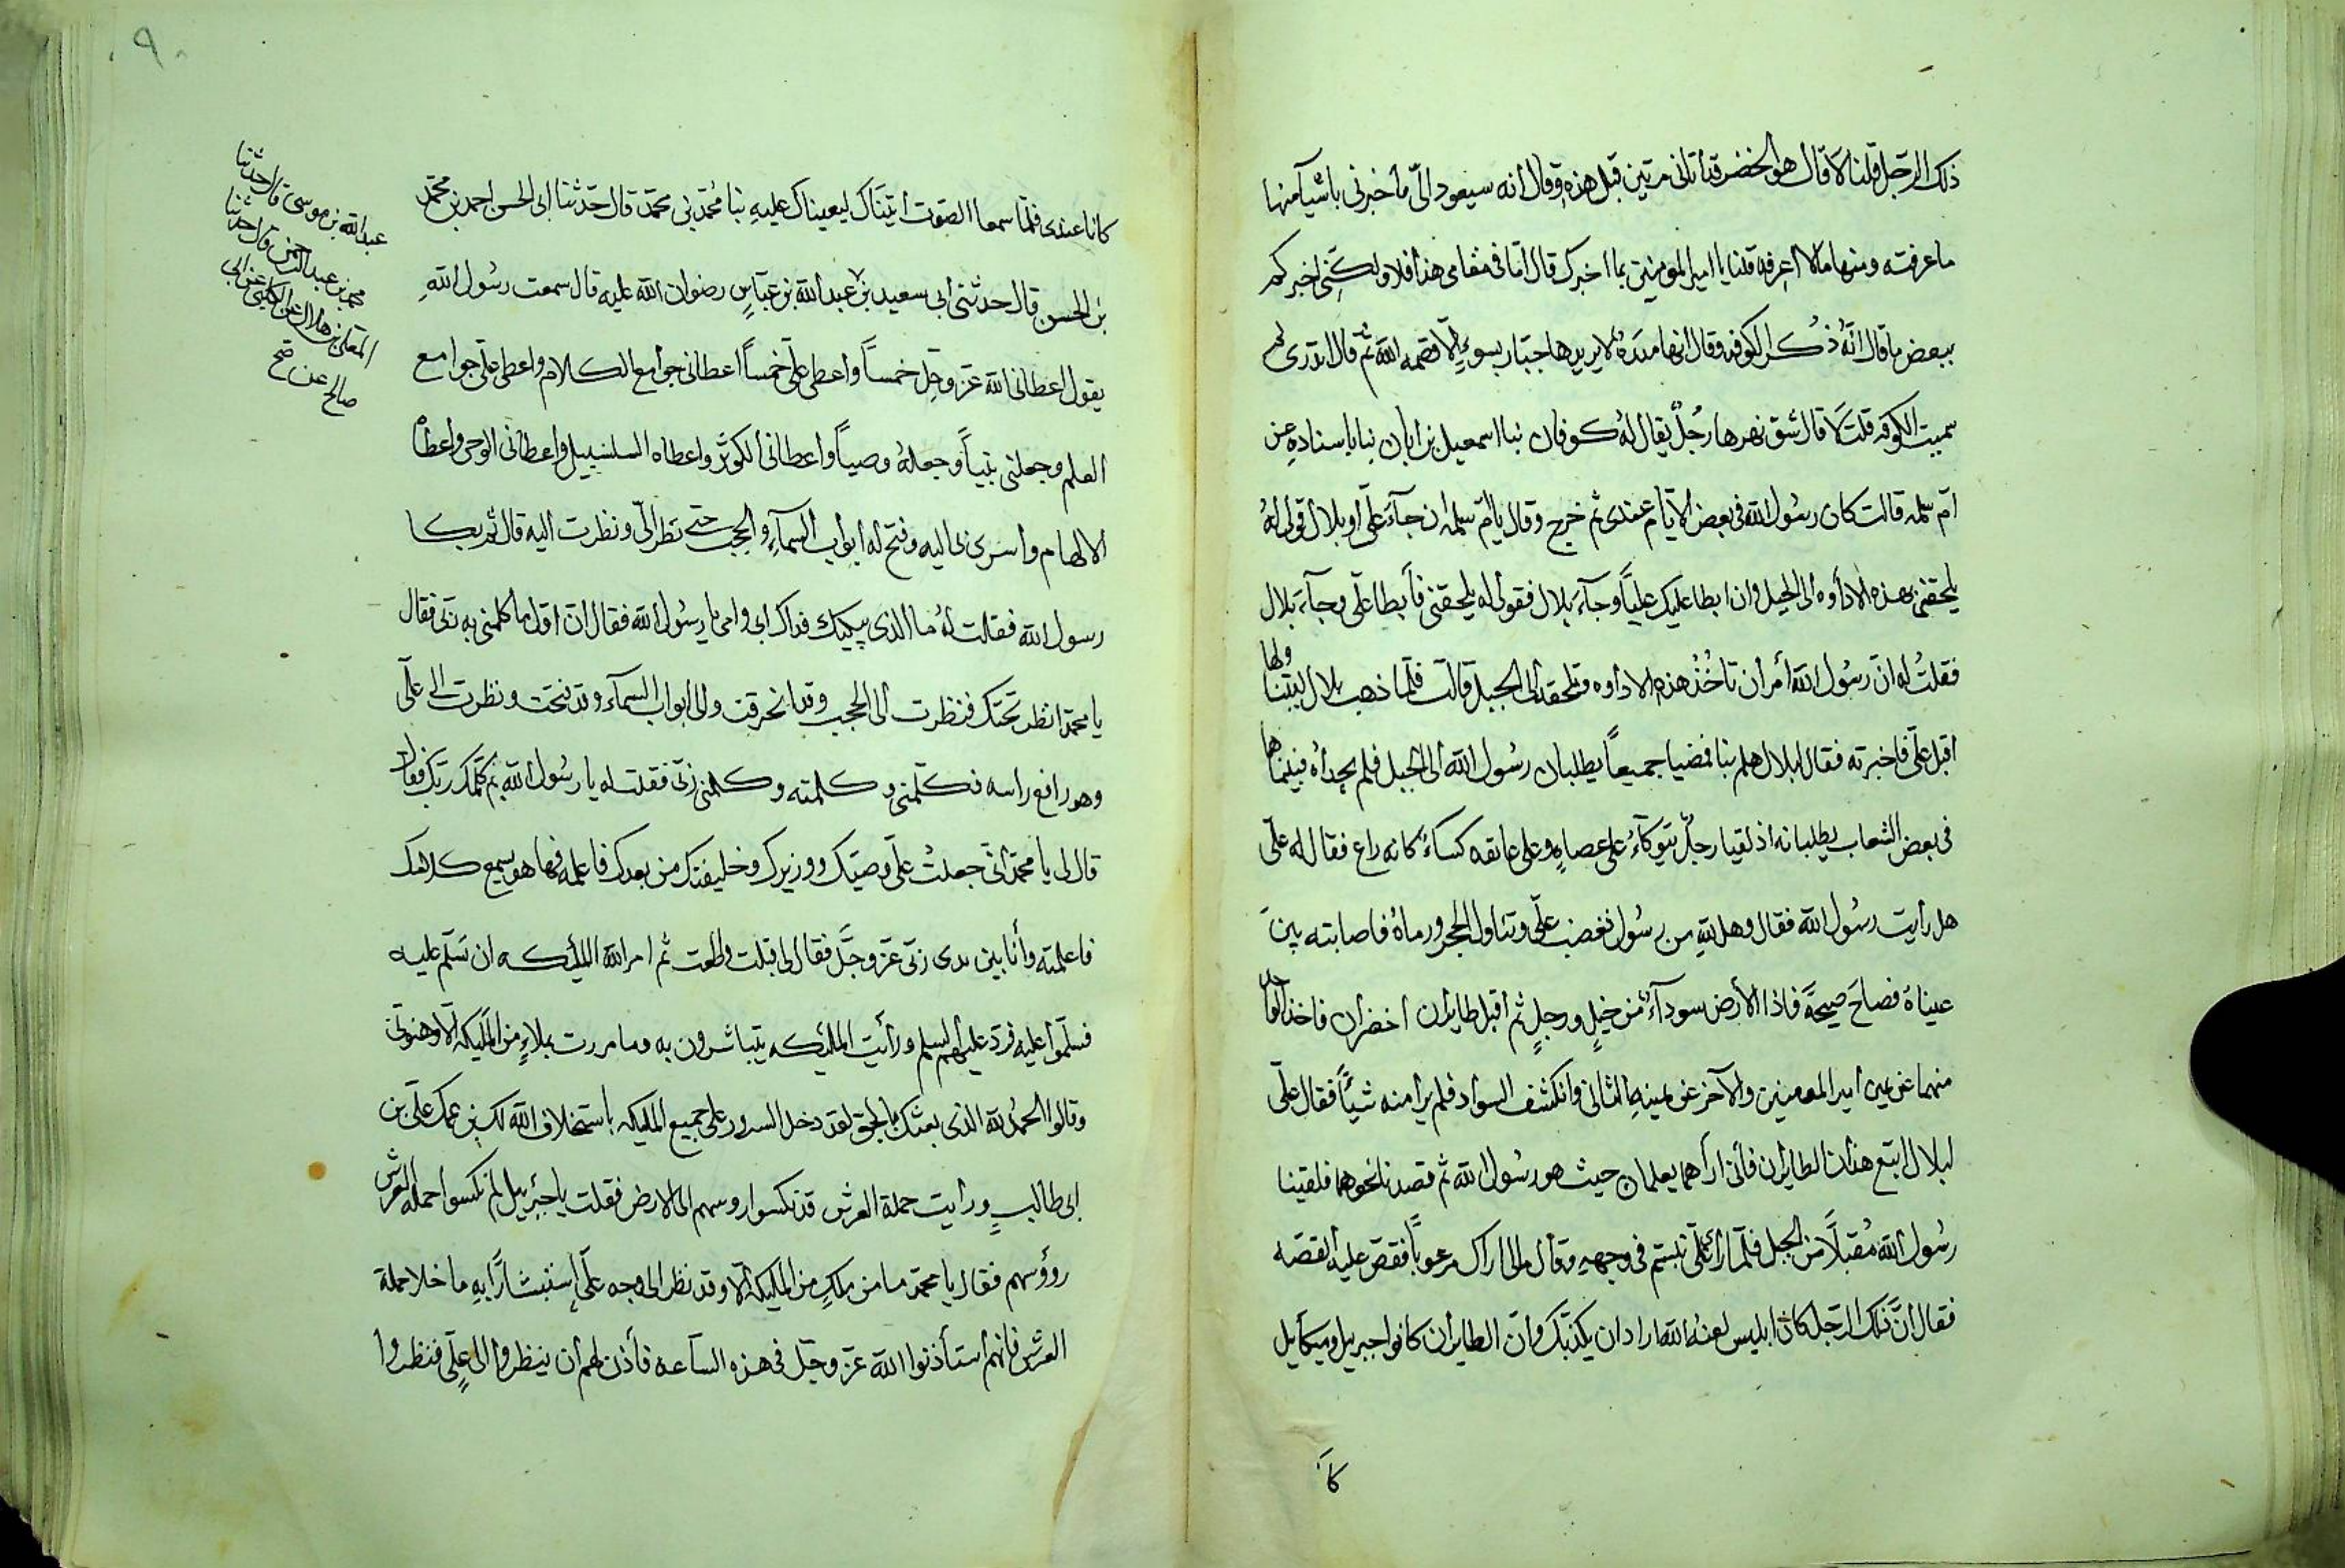 ذلك الرجل قلنا لا قال هو الخضر قد اتاني مرتين قبل هذه وقال انه سيعود الي ما خبرني باشيآ منها
ما عرفته ومنها ما لا اعرفه قلنا يا امير المومنين بما اخبرك قال اما في مقامي هذا فلا ولكني اخبركم
ببعض ما قال انه ذكر الكوفه وقال انها مدره لا يريدها جبار بسوء الا قصمه الله ثم قال اتدري لم
سميت الكوفه قلت لا قال شق نهرها رجل يقال له كوفان نبا اسمعيل بن ابان نبا باسناده عن
ام سلمه قالت كان رسول الله في بعض الايام عندي ثم خرج وقال يا ام سلمه ان جآء علي او بلال قولي له
يلحقني بهذه الاداوه الى الجبل وان ابطا عليك عليا وجآء بلال فقولي له يلحقني فأبطا علي وجآء بلال
فقلت له ان رسول الله أمر أن تأخذ هذه الاداوه وتلحقه الى الجبل قالت فلما ذهب بلال ليتناولها
اقبل علي فاخبرته فقال لبلال هلم بنا فمضيا جميعا يطلبان رسول الله الى الجبل فلم يجداه فبينما هما
في بعض الشعاب يطلبانه اذ لقيا رجل يتوكآء على عصاه وعلى عاتقه كساء كانه راع فقال له علي
هل رأيت رسول الله فقال وهل لله من رسول فغضب علي وتناول الحجر ورماه فاصابته بين
عيناه فصاح صيحة فاذا الأرض سودآء من خيل ورجل ثم اقبل طايران اخضران فاخذ الواحد
منهما عن يمين امير المومنين والآخر عن يمينه الثاني وانكشف السواد فلم يرا منه شيئا فقال علي
لبلال اتبع هذان الطايران فأني اراهما يعلمان حيث هو رسول الله ثم قصدنا نحوهما فلقينا
رسول الله مقبلا من الجبل فلما رآى علي تبسم في وجهه وقال مالي اراك مرعوبا فقص عليه القصه
فقال ان ذلك الرجل كان ابليس لعنه الله اراد ان يكذبك وان الطايران كانوا جبريل وميكآيل
كانا
كانا عندي فلما سمعا الصوت اتيناك ليعيناك عليه نبا محمد بن محمد قال حدثنا ابي الحسن احمد بن محمد
بن الحسن قال حدثني ابي سعيد بن عبد الله بن عباس رضوان الله عليه قال سمعت رسول الله
يقول اعطاني الله عز وجل خمسا وأعطى علي خمسا اعطاني جوامع الكلام واعطى علي جوامع
العلم وجعلني نبيا وجعله وصيا وأعطاني الكوثر واعطاه السلسبيل واعطاني الوحي واعطاه
الالهام واسرى بي اليه وفتح له ابواب السمآء والحجب حتى نظر الي ونظرت اليه قال ثم بكا
رسول الله فقلت له ما الذي يبكيك فداك ابي وامي يا رسول الله فقال ان اول ما كلمني به ربي فقال
يا محمد انظر تحتك فنظرت الى الحجب وقد انخرقت والى ابواب السمآء وقد فتحت ونظرت الى علي
وهو رافع راسه فكلمني وكلمته وكلمني ربي فقلت له يا رسول الله بم كلمك ربك فقال
قال لي يا محمد اني جعلت علي وصيك ووزيرك وخليفتك من بعدك فاعلمه فها هو يسمع كلامك
فاعلمته وأنا بين يدي ربي عز وجل فقال لي قبلت واطعت ثم امر الله الملئكه ان تسلم عليه
فسلموا عليه فرد عليهم السلم ورأيت الملئكه يتباشرون به وما مررت بملاء من المليكه الا وهنوني
وقالوا الحمد لله الذي بعثك بالحق لقد دخل السرور على جميع المليكه باستخلاف الله لك بن عمك علي بن
ابي طالب ورايت حملة العرش قد نكسوا روسهم الى الارض فقلت يا جبرئيل لم نكسوا حملة العرش
رؤوسهم فقال يا محمد ما من ملك من المليكه الا وقد نظر الى وجه علي استبشارا به ما خلا حملة
العرش فانهم استأذنوا الله عز وجل في هذه الساعه فأذن لهم أن ينظروا الى علي فنظروا
عبد الله بن موسى قال حدثنا
محمد بن عبد الرحمن قال حدثنا
المعلى بن هلال عن الكلبي عن ابي
صالح عن صح
٩٠